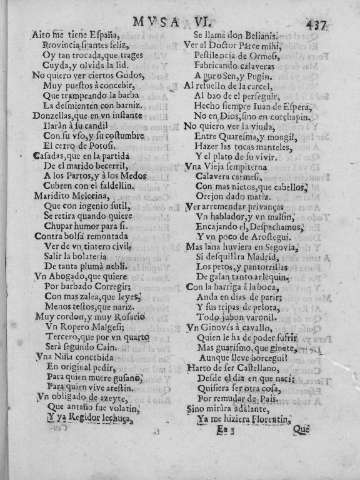 MVSA VI. 437
Asco me tiene España,
Provincia antes feliz,
Oy tan trocada, que trages
Cuyda, y olvida la lid.
No quiero ver ciertos Godos,
Muy puestos à concebir,
Que trampeando la barba
La desmienten con barniz.
Donzellas, que en vn instante
Ilarán à su candil
Con su vso, y su costumbre
El cerro de Potosi.
Casadas, que en la partida
De el marido becerril,
A los Partos, y à los Medos
Cubren con el faldellin.
Maridito Melecina,
Que con ingenio sutil,
Se retira quando quiere
Chupar humor para si.
Contra bolsa remontada
Ver de vn tintero civil,
Salir la bolateria
De tanta pluma nebli.
Vn Abogado, que quiere
Por barbado Corregir;
Con mas zalea, que leyes,
Menos testos, que nariz.
Muy cordon, y muy Rosario
Vn Ropero Malgesi;
Tercero, que por vn quarto
Será segundo Cain.
Vna Niña concebida
En original pedir,
Para quien nuere gusano,
Para quien vive arestin.
Vn obligado de azeyte,
Que antaño fue volatin,
Y ya Regidor lechuça,
Se llame don Belianis.
Ver al Doctor Parce mihi,
Pestilencia de Ormesi,
Fabricando calaveras
A puro Sen, y Pugin.
Al resuello de la carcel,
Al bao de el perseguir,
Hecho siempre Iuan de Espera,
No en Dios, sino en corchapin.
No quiero ver la viuda,
Entre Quaresma, y mongil,
Hazer las tocas manteles,
Y el plato de su vivir.
Vna Vieja sempiterna
Calavera carmesi,
Con mas nietos, que cabellos,
Orejon dado matiz.
Ver arremendar privanças
Vn hablador, y vn malsin,
Encajando el, Despachamos,
Y vn poco de Arostegui.
Mas lana huviera en Segovia,
Si desquillara Madrid,
Los petos, y pantorrillas
De galan tanto arlequin.
Con la barriga à la boca,
Anda en dias de parir;
Y sus tripas de pelota,
Todo jabon varonil.
Vn Ginovés à cavallo,
Quien le ha de poder sufrir
Mas guarismo, que ginete,
Aunque lleve borceguil
Harto de ser Castellano,
Desde el dia en que naci;
Quisiera ser otra cosa,
Por remudar de Pais.
Sino mirara adelante,
Ya me hiziera Florentin,
Ee 3 Que